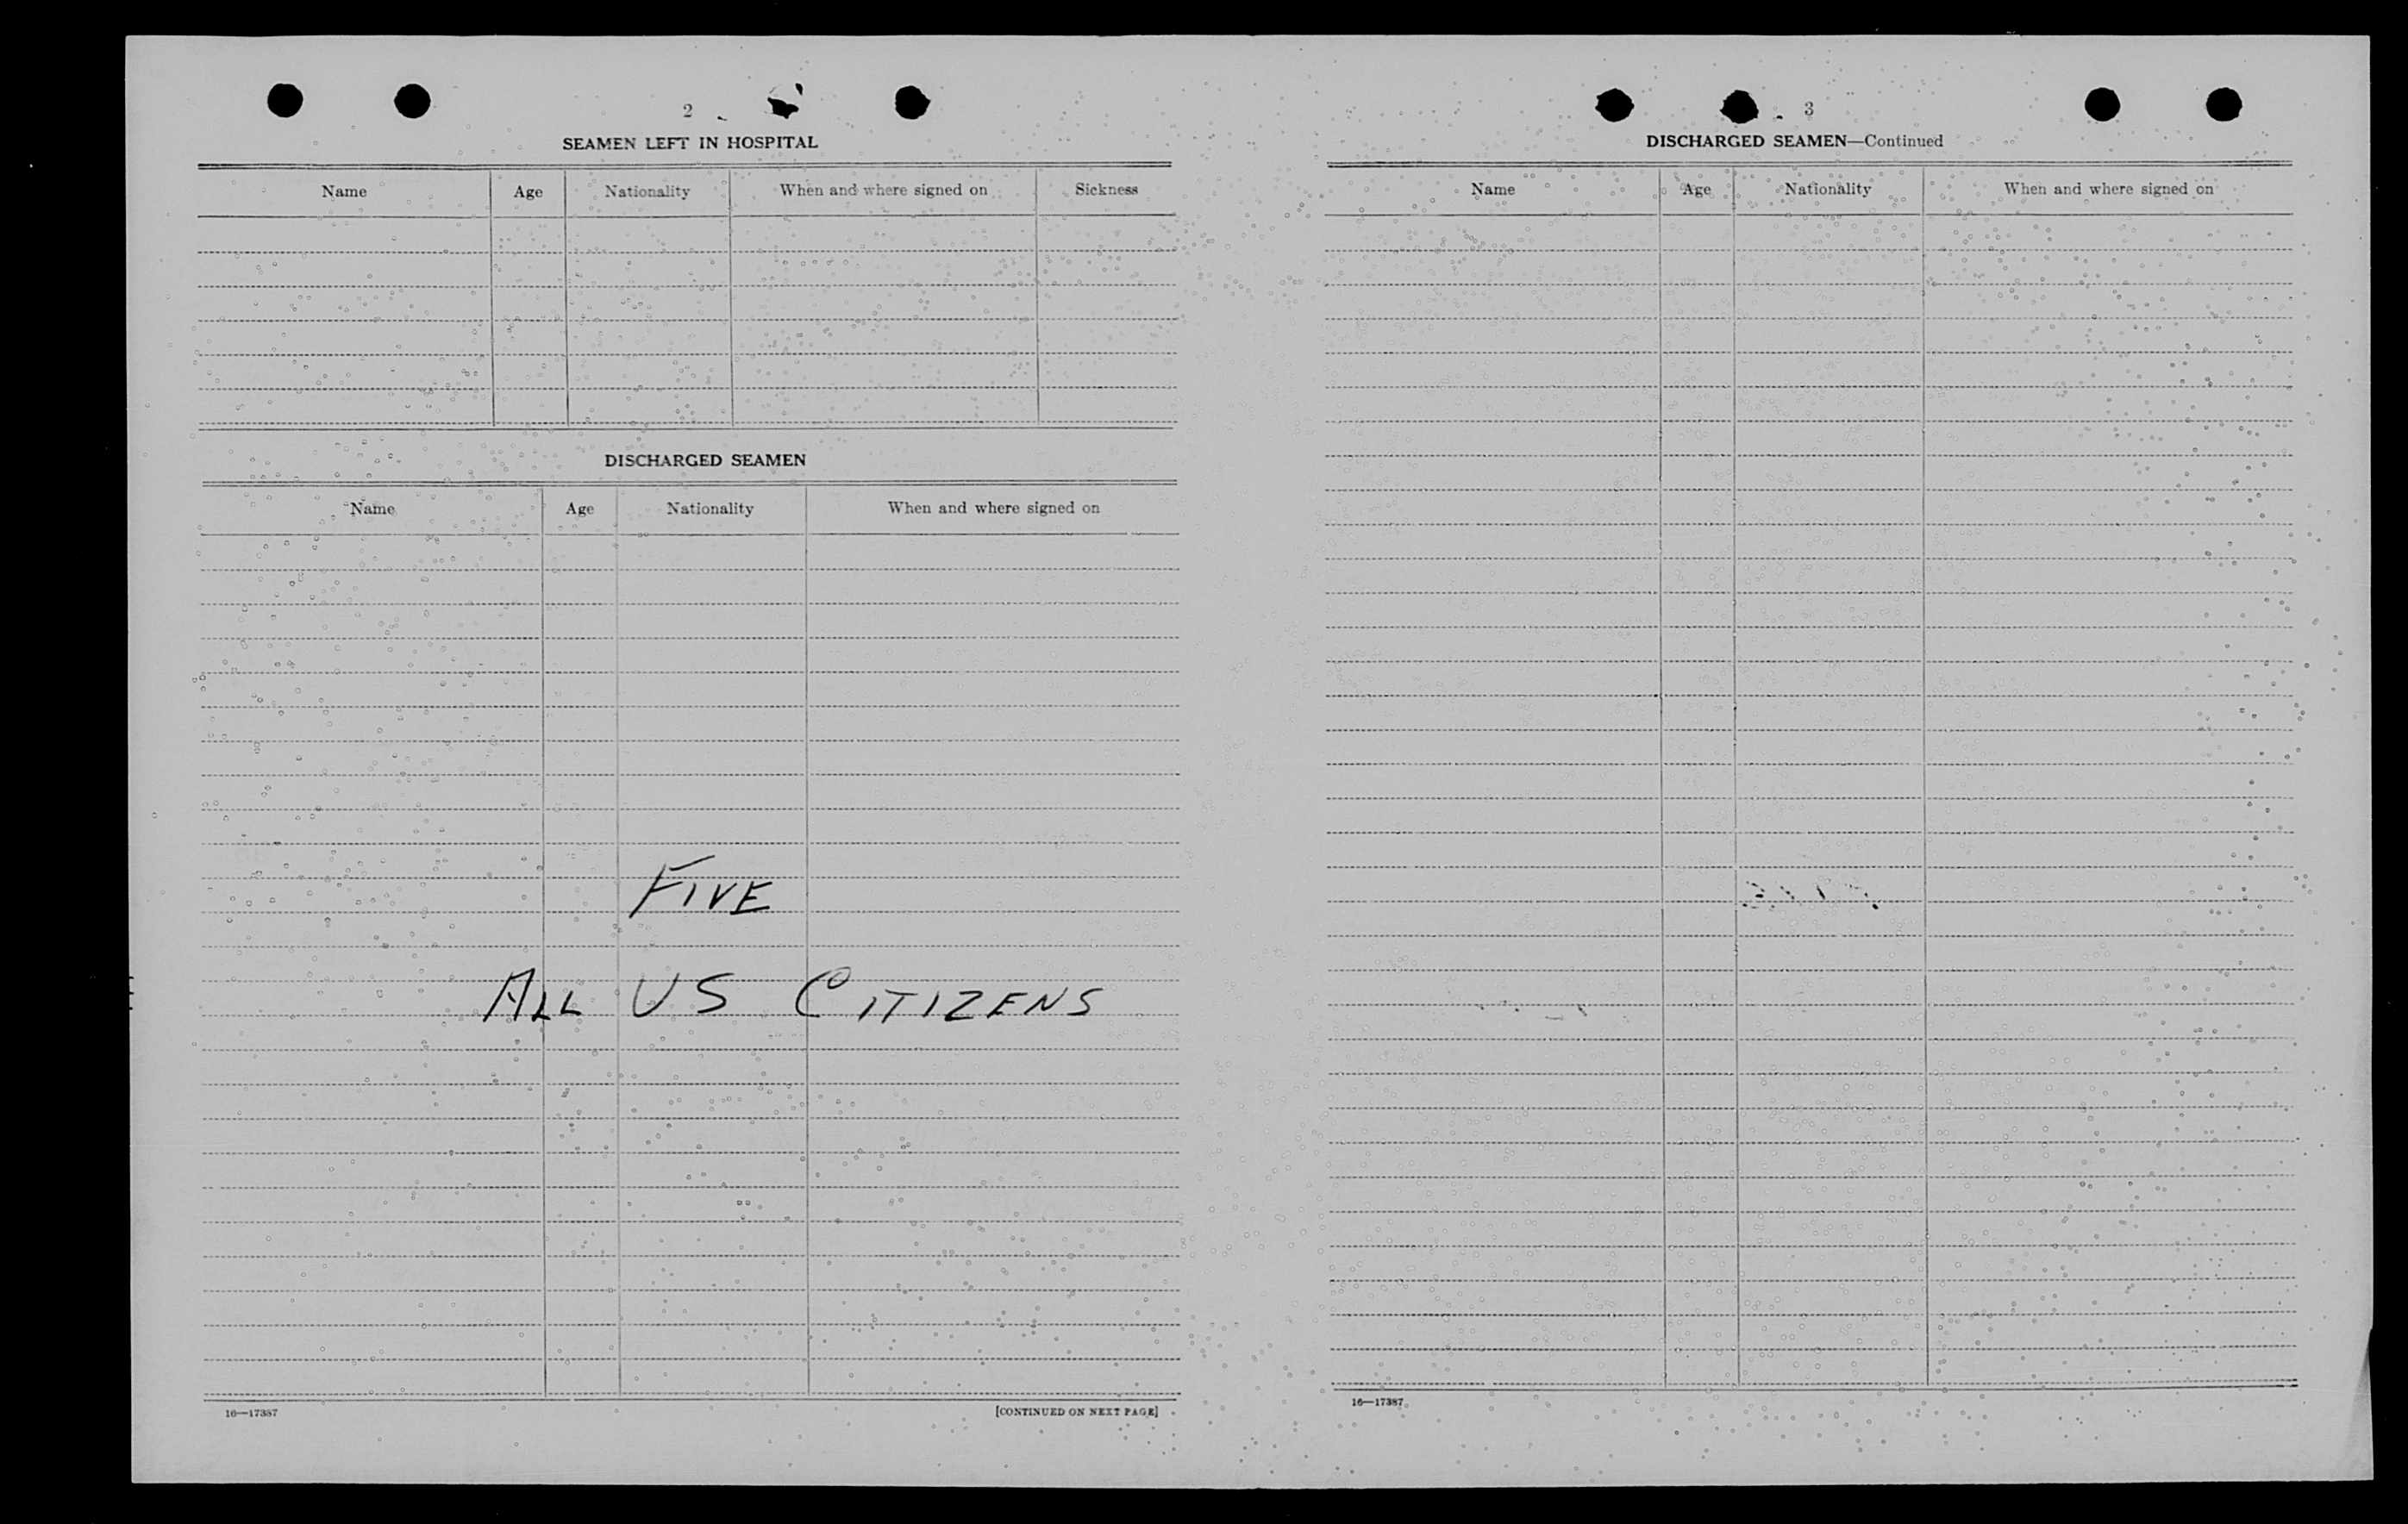 2
SEAMEN LEFT IN HOSPITAL
Name Age Nationality When and where signed on Sickness
DISCHARGED SEAMEN
Name Age Nationality When and where signed on
FIVE
ALL US CITIZENS
16—17387 [CONTINUED ON NEXT PAGE]
3
DISCHARGED SEAMEN—Continued
Name Age Nationality When and where signed on
16—17387